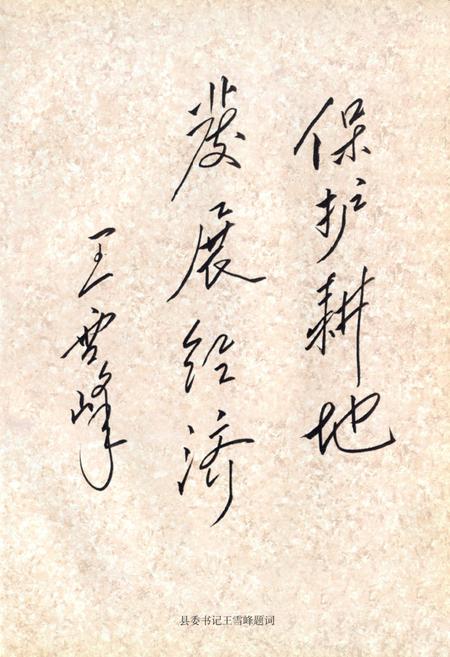 保护耕地
发展经济
王雪峰
县委书记王雪峰题词